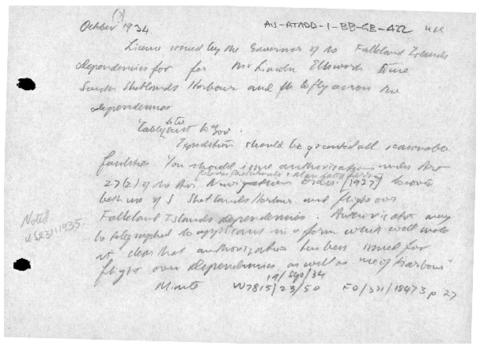 (?)
October 1934
AU-ATADD-1-BB-GB-422
Licence issued by the Governor of the Falkland Islands
dependencies for for Mr Lincoln Ellsworth to use
South Shetlands Harbour and to fly across the
dependencies
'Cable sent to Gov.
Expedition should be granted all reasonable
facilities. You should issue authorisation under Art
27(2) of the Air Navigation Order (1927)
both use of S Shetlands Harbour and flight over
Falkland Islands dependencies. Authorisation may
be telegraphed to applicant in a form which will make
it clear that authorization has been issued for
flight over dependencies as well as use of harbour"
Noted
1935.
Minute W7815/23/50 FO/371/18473 p 27